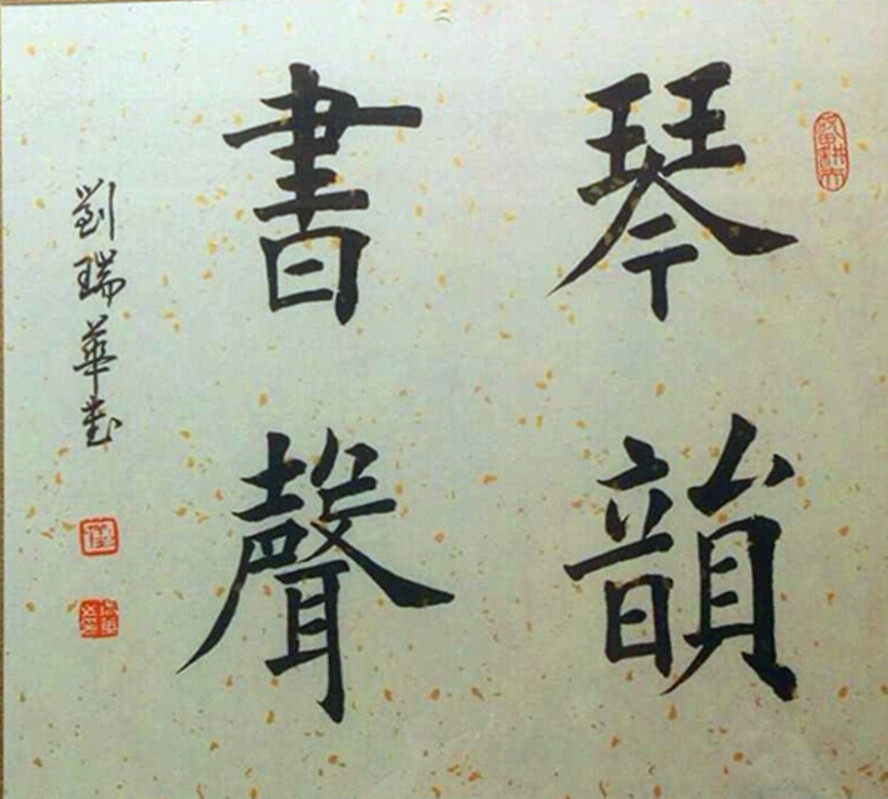 琴韻
書聲
劉瑞華書